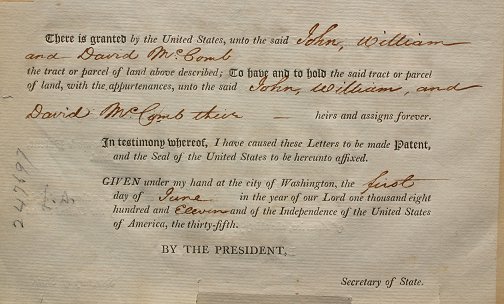 There is granted by the United States, unto the said John, William
and David McComb
the tract or parcel of land above described; To have and to hold the said tract or parcel
of land, with the appurtenances, unto the said John, William, and
David McComb their — heirs and assigns forever.
In testimony whereof, I have caused these Letters to be made Patent,
and the Seal of the United States to be hereunto affixed.
GIVEN under my hand at the city of Washington, the first
day of June in the year of our Lord one thousand eight
hundred and Eleven and of the Independence of the United States
of America, the thirty-fifth.
BY THE PRESIDENT,
Secretary of State.